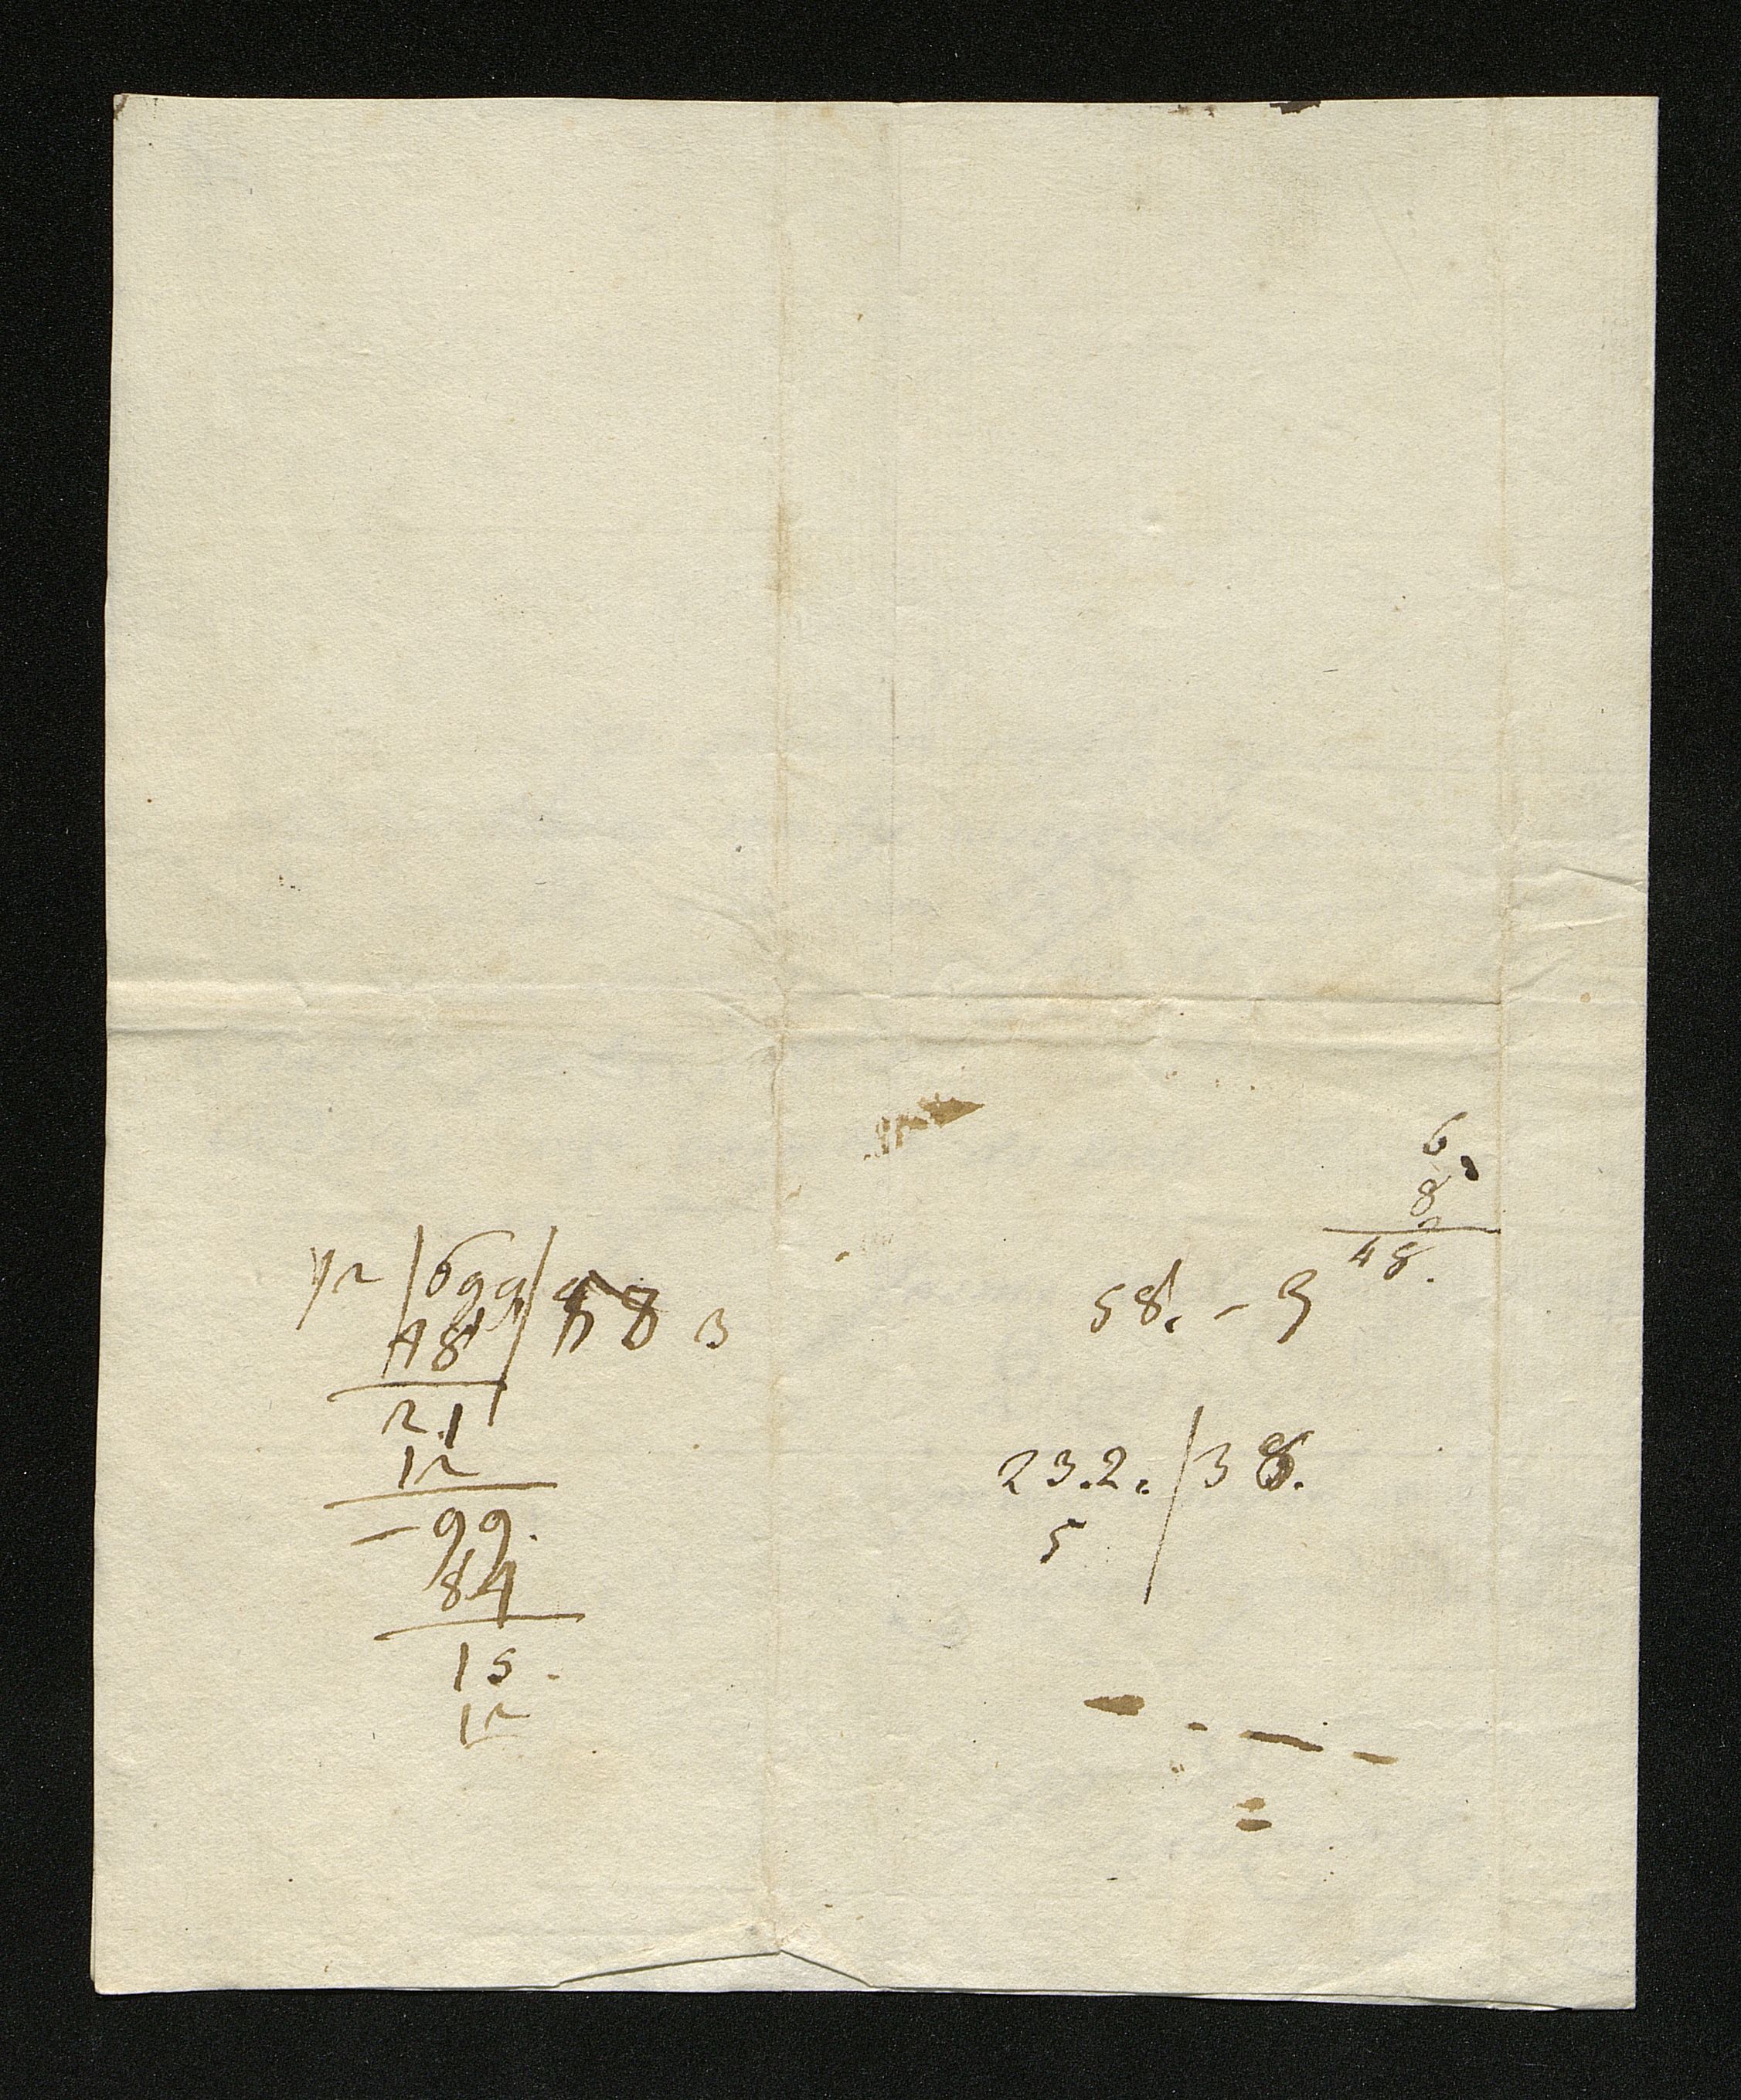 12 / 699 / 58 3
48
21
12
- 99.
84
15.
12
6.
8
48.
58. - 3
23.2. / 38.
5